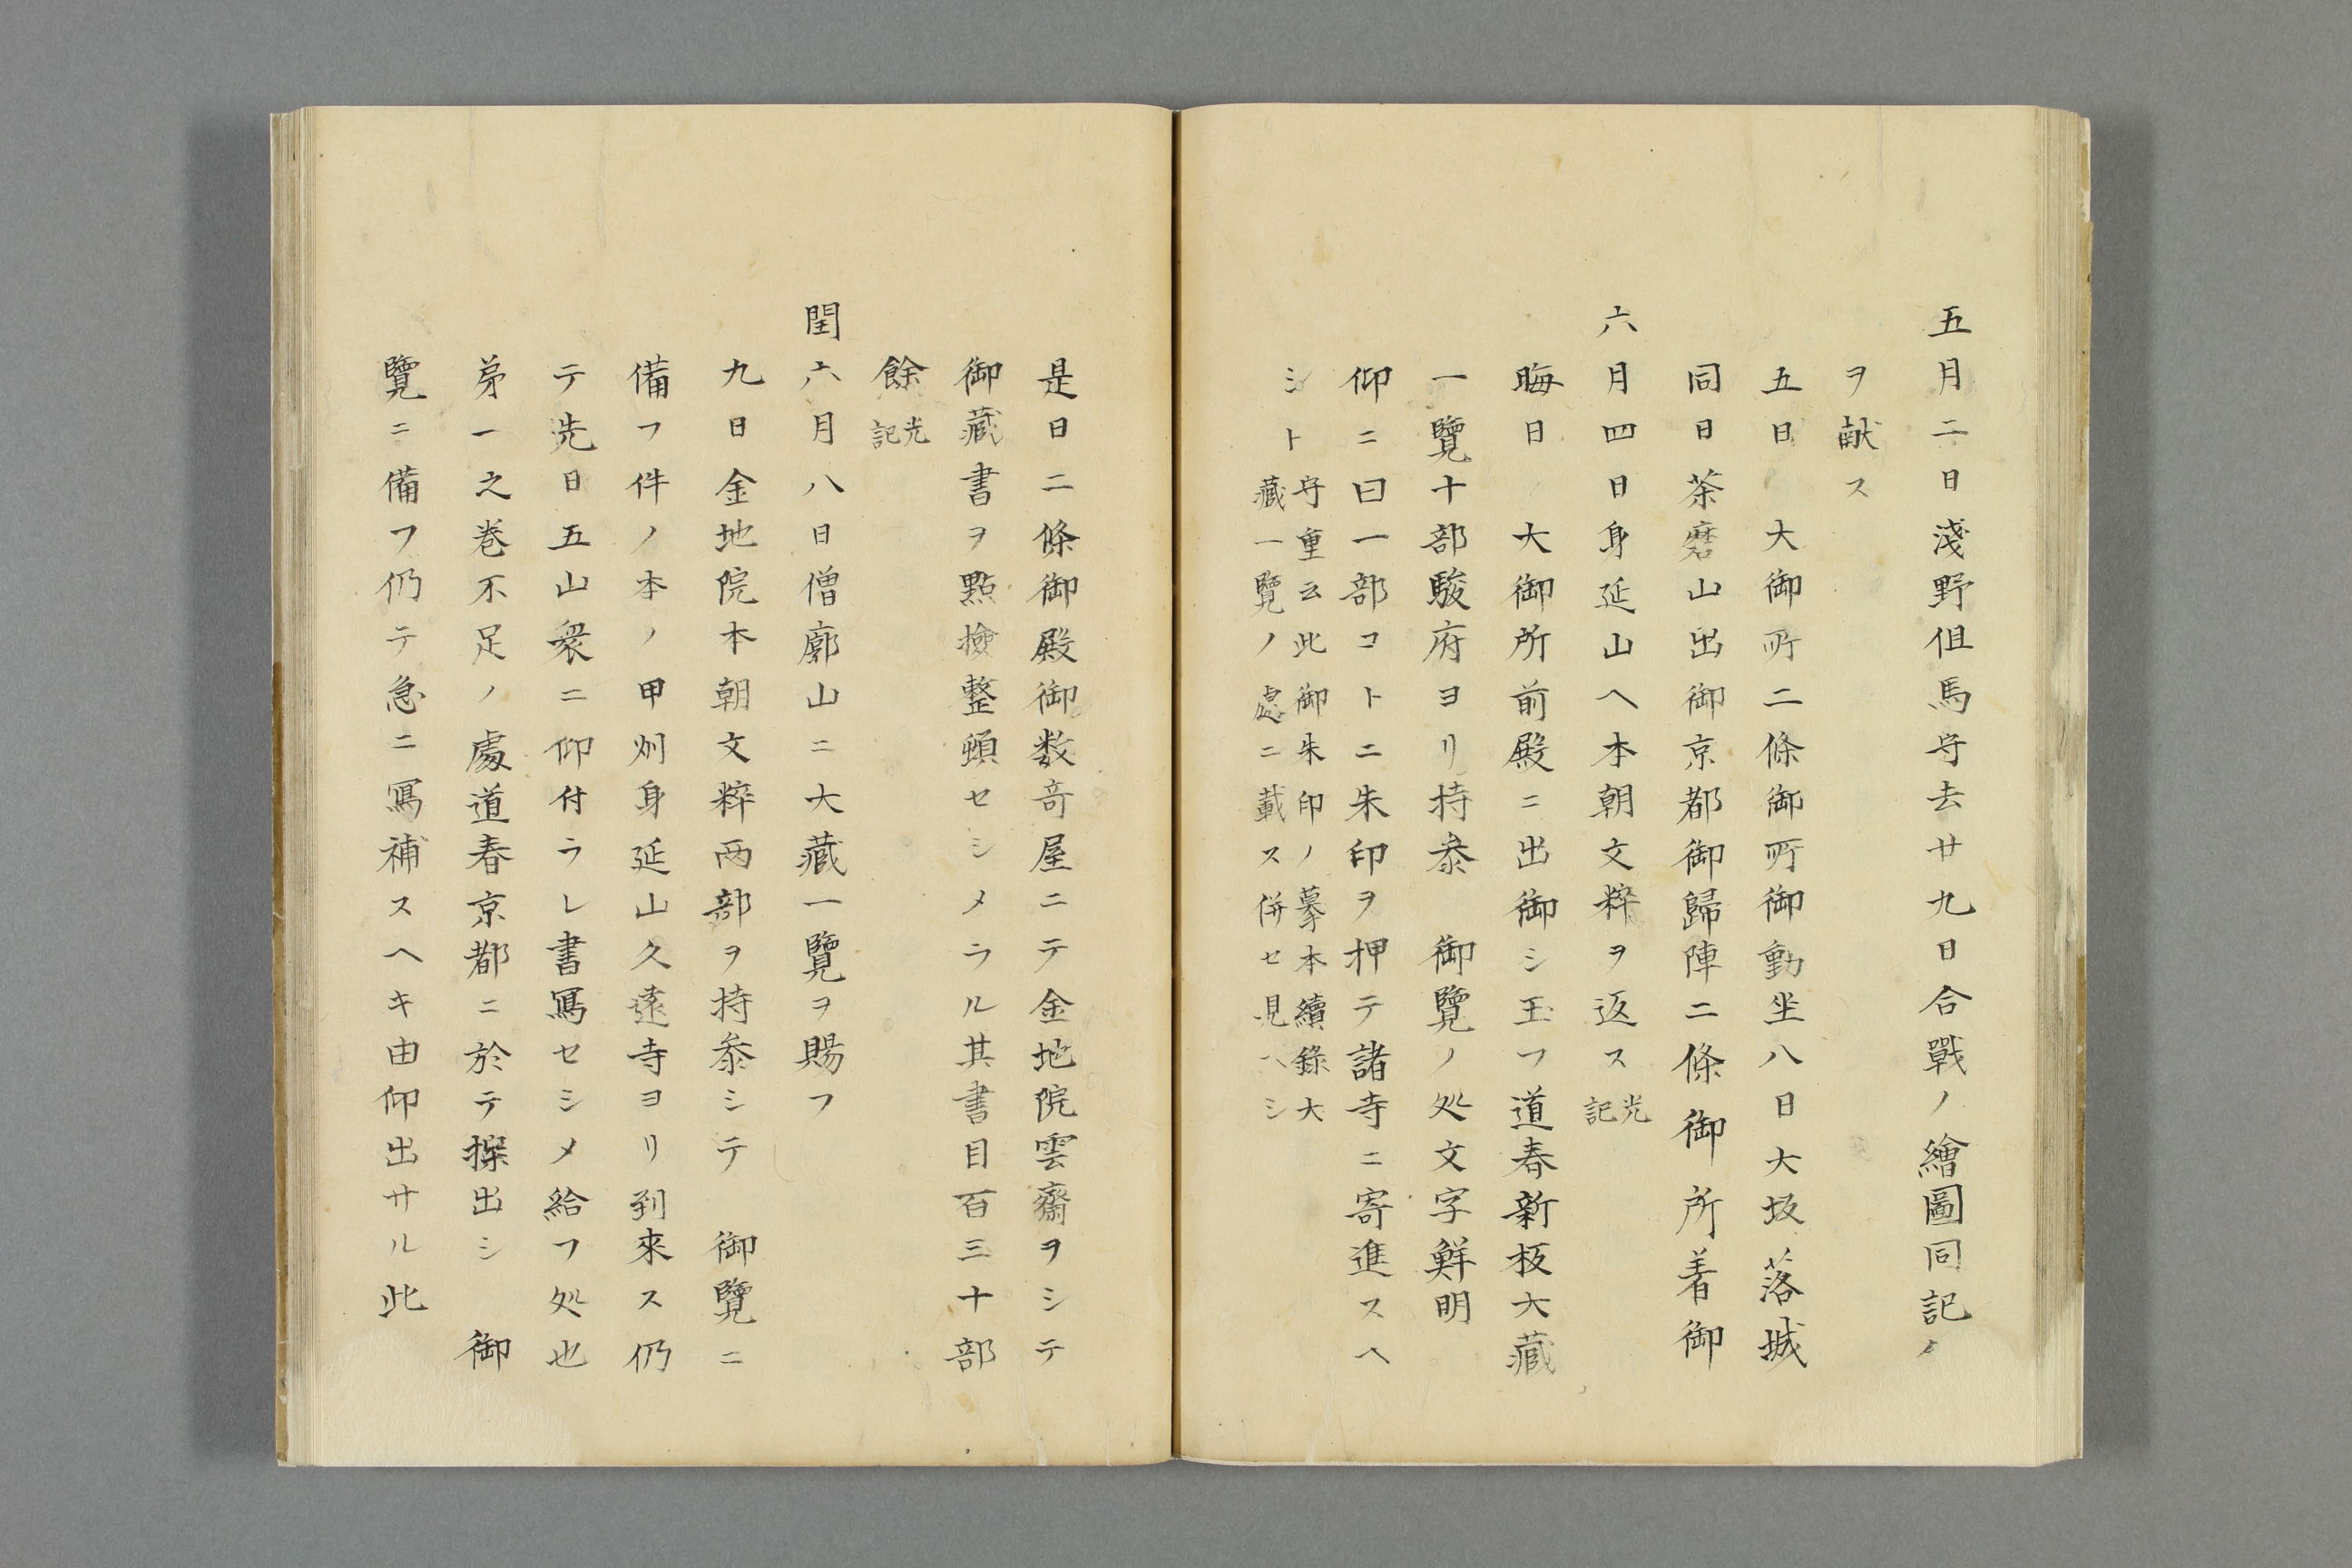 五月二日淺野伹馬守去廿九日合戰ノ繪圖同記ノ
ヲ献ス
五日　大御所二條御所御動坐八日大坂落城
同日茶磨山出御京都御歸陣二條御所着御
六月四日身延山ヘ本朝文粹ヲ返ス光記
晦日　大御所前殿ニ出御シ玉フ道春新板大藏
一覽十部駿府ヨリ持參　御覽ノ処文字鮮明
仰ニ曰一部コトニ朱印ヲ押テ諸寺ニ寄進スヘ
シト守重云此御朱印ノ摹本續錄大
藏一覽ノ處ニ載ス併セ見ヘシ
是日二條御殿御数竒屋ニテ金地院雲齋ヲシテ
御藏書ヲ點撿整頓セシメラル其書目百三十部
餘光記
閏六月八日僧廓山ニ大藏一覽ヲ賜フ
九日金地院本朝文粹两部ヲ持參シテ　御覽ニ
備フ件ノ本ノ甲州身延山久遠寺ヨリ到來ス仍
テ先日五山衆ニ仰付ラレ書寫セシメ給フ処也
第一之巻不足ノ處道春京都ニ於テ探出シ　御
覽ニ備フ仍テ急ニ寫補スヘキ由仰出サル此